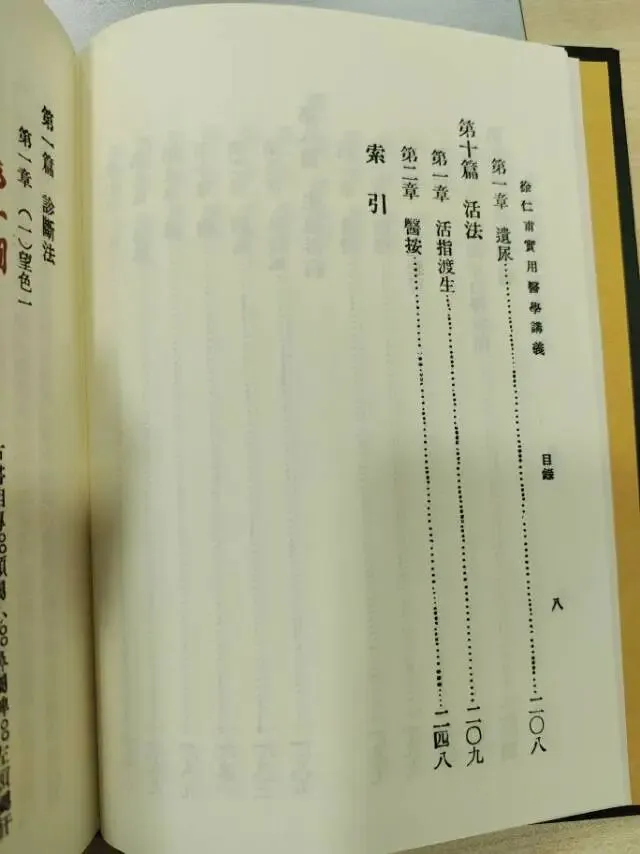 徐仁甫實用醫學講義
目錄
八
第一章 遺尿……二〇八
第十篇 活法
第一章 活指渡生……二〇九
第二章 醫按……二四八
索引
第一篇 診斷法
第一章 (一)望色一